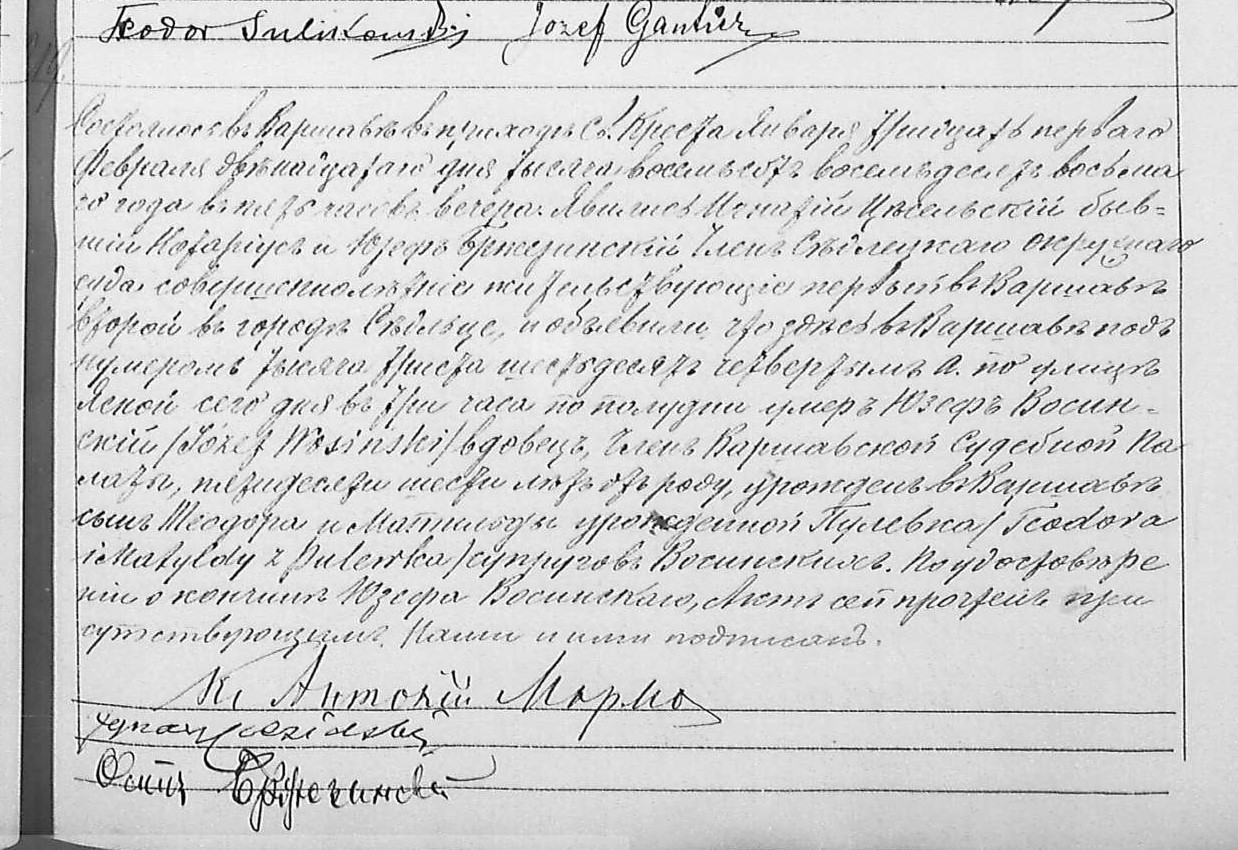 Teodor Sulikowski Józef Gautier
Состоялось въ Варшавѣ въ приходѣ Св. Креста Января тридцать перваго
Февраля двѣнадцатаго дня тысяча восемьсотъ восемьдесятъ восьма
го года въ пять часовъ вечера. Явились Игнатій Цѣсельскій быв=
шій Нотаріусъ и Юзефъ Бржезинскій Членъ Сѣдлецкаго Окружнаго
суда совершеннолѣтніе жительствующіе первый въ Варшавѣ
второй въ городѣ Сѣдльце, и объявили, что здѣсь въ Варшавѣ подъ
нумеромъ тысяча триста шестьдесятъ четвертымъ А. по улицѣ
Ясной сего дня въ три часа по полудни умеръ Юзефъ Восин-
скій /Józef Wosiński/ вдовецъ, Членъ Варшавской Судебной Па
латы, пятидесяти шести лѣтъ отъ роду, урожденъ въ Варшавѣ
сынъ Теодора и Матильды урожденной Пулевка / Teodora
i Matyldy z Pulewka / супруговъ Восинскихъ. По удостовѣре
ніи о кончинѣ Юзефа Восинскаго, Актъ сей прочтенъ при
сутствующимъ Нами и ими подписанъ.
Кс Антоній
Осипъ Бржезинскій